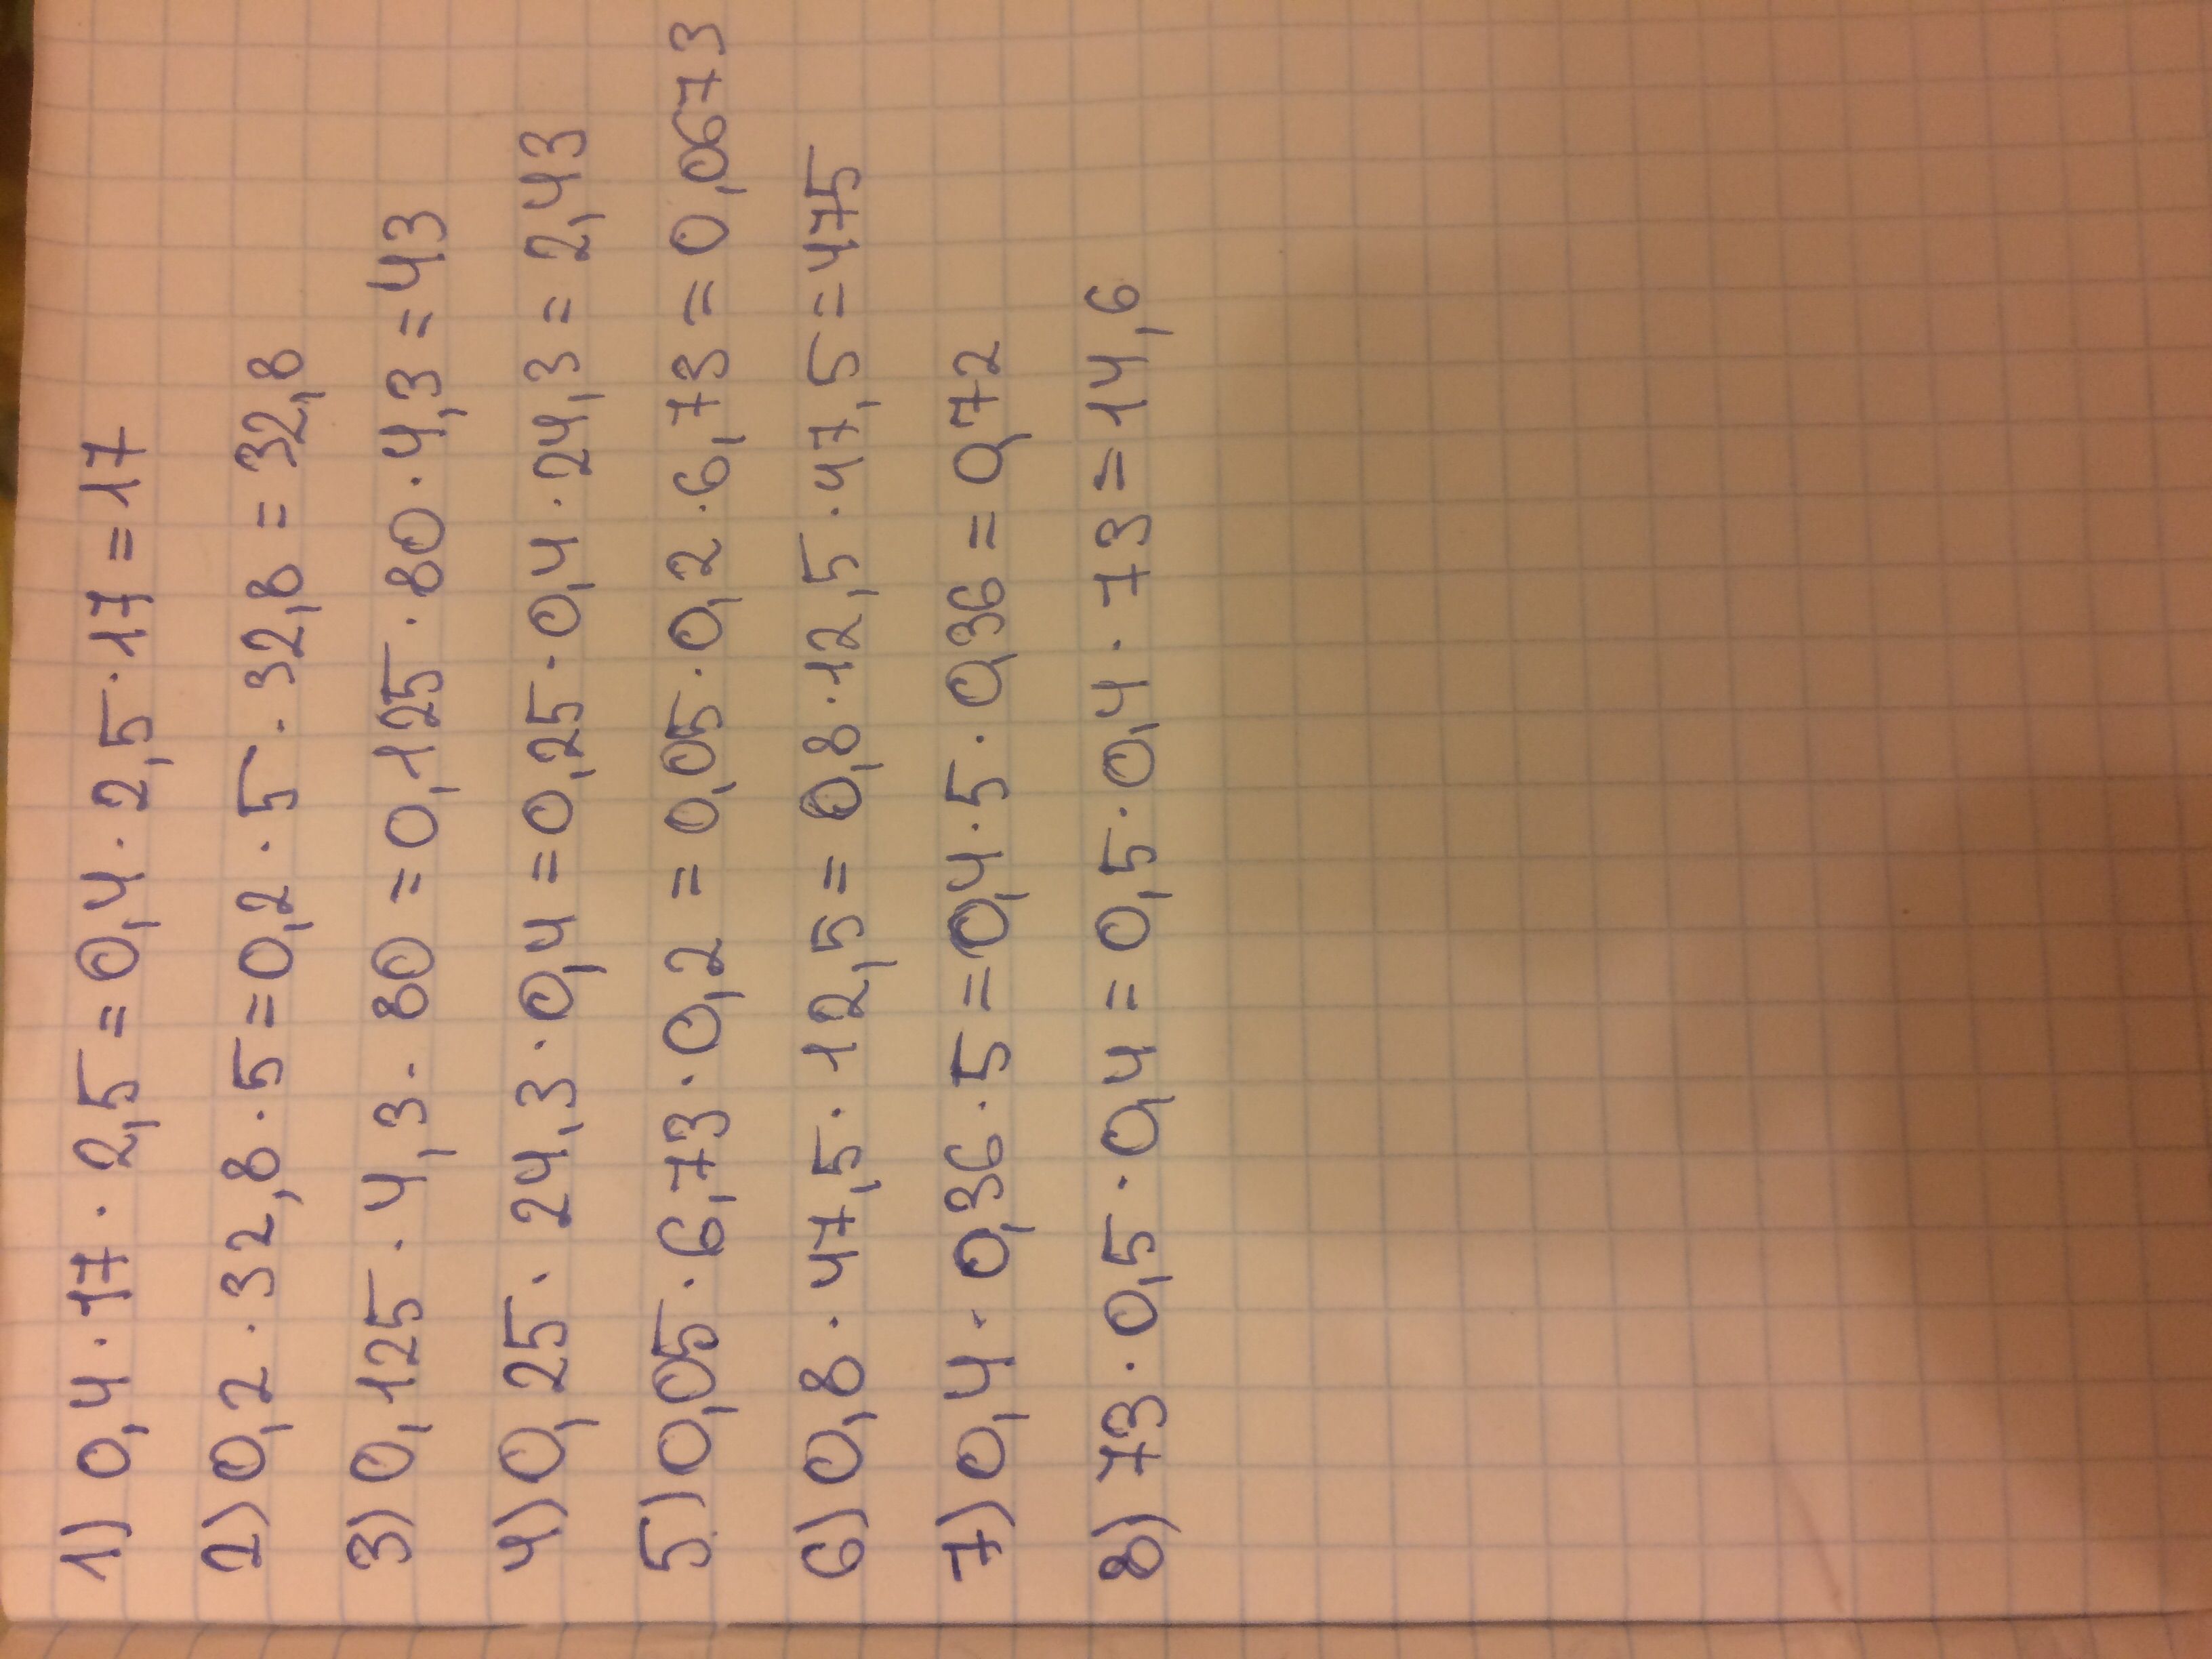 1) 0,4 · 17 · 2,5 = 0,4 · 2,5 · 17 = 17
2) 0,2 · 32,8 · 5 = 0,2 · 5 · 32,8 = 32,8
3) 0,125 · 4,3 · 80 = 0,125 · 80 · 4,3 = 43
4) 0,25 · 24,3 · 0,4 = 0,25 · 0,4 · 24,3 = 2,43
5) 0,05 · 6,73 · 0,2 = 0,05 · 0,2 · 6,73 = 0,0673
6) 0,8 · 47,5 · 12,5 = 0,8 · 12,5 · 47,5 = 475
7) 0,4 · 0,36 · 5 = 0,4 · 5 · 0,36 = 0,72
8) 73 · 0,5 · 0,4 = 0,5 · 0,4 · 73 = 14,6